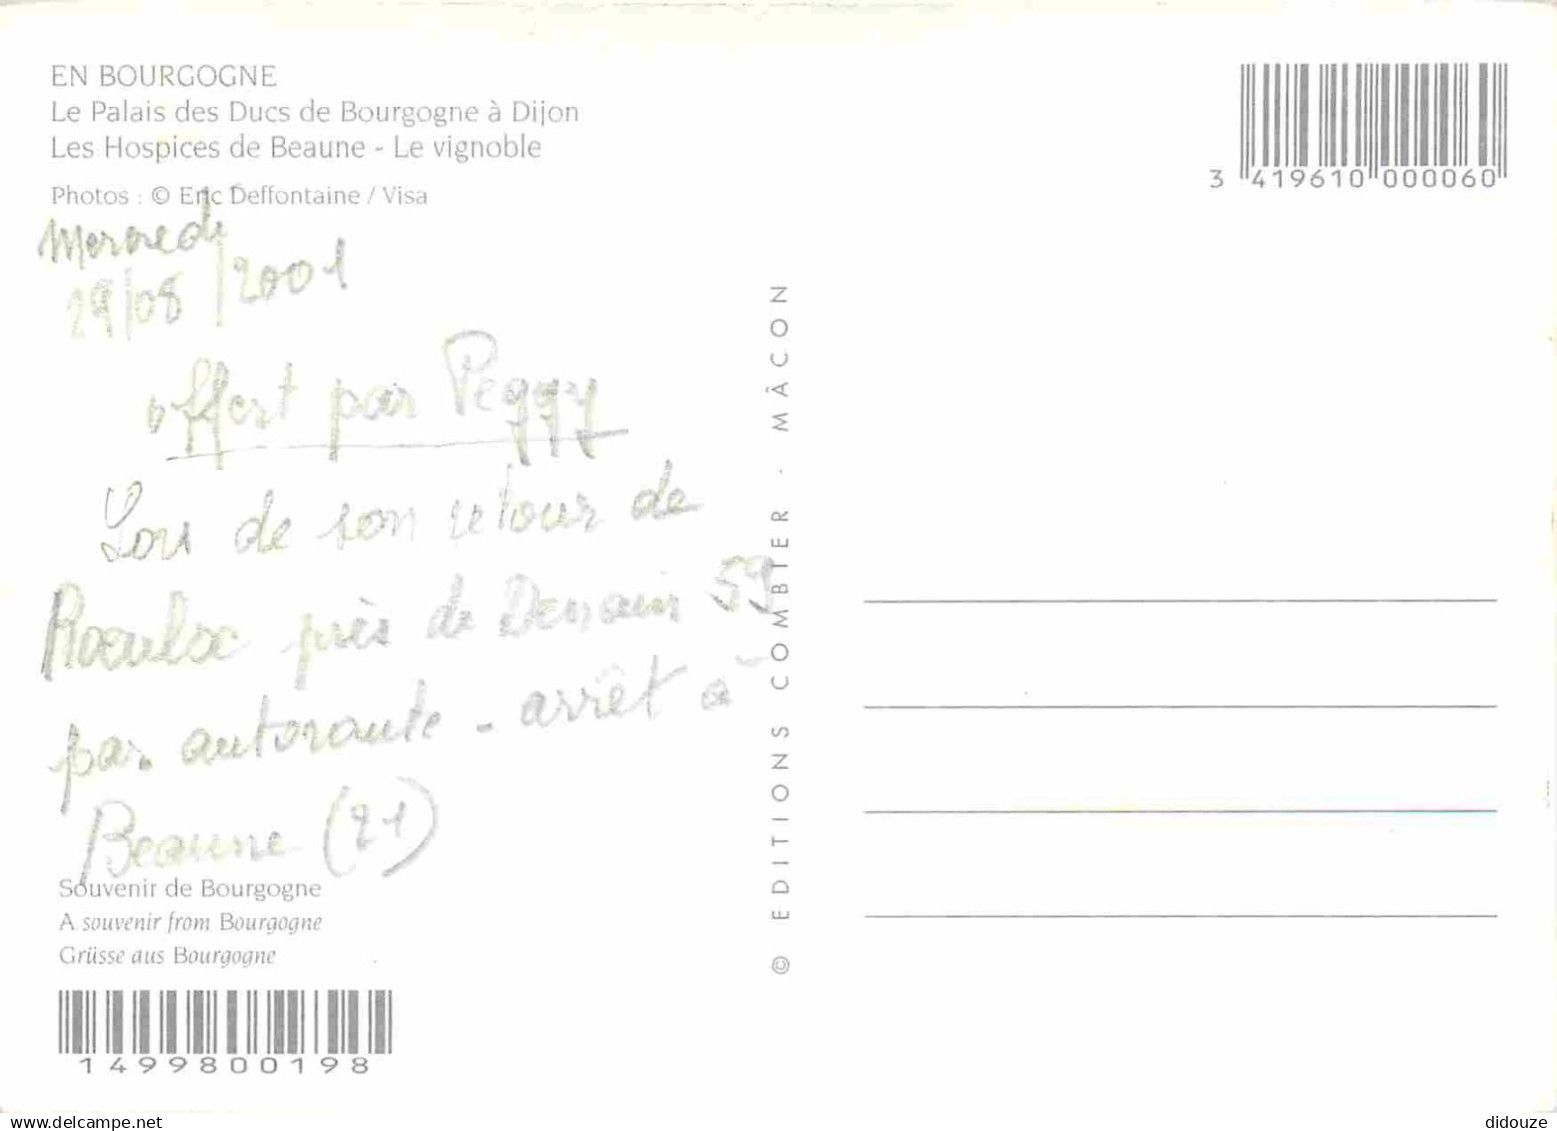 EN BOURGOGNE
Le Palais des Ducs de Bourgogne à Dijon
Les Hospices de Beaune - Le vignoble
Photos : © Eric Deffontaine / Visa
3 419610 000060
Mercredi
29/08/2001
offert par Peggy
Lors de son retour de
près de Denain 59
par autoroute - arrêt à
Beaune (21)
Souvenir de Bourgogne
A souvenir from Bourgogne
Grüsse aus Bourgogne
1499800198
© EDITIONS COMBIER - MÂCON
didouze